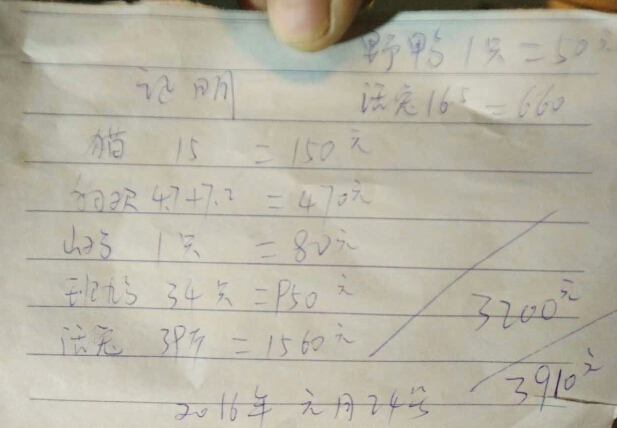 野鸭1只=50元
证明 活兔16⁵=660
猫 15 =150元
狗欢 4.7+7.2 =470元
山鸡 1只 =80元
班鸠 34只=950元
活兔 39斤=1560元
3200元
3910元
2016年 元月24号